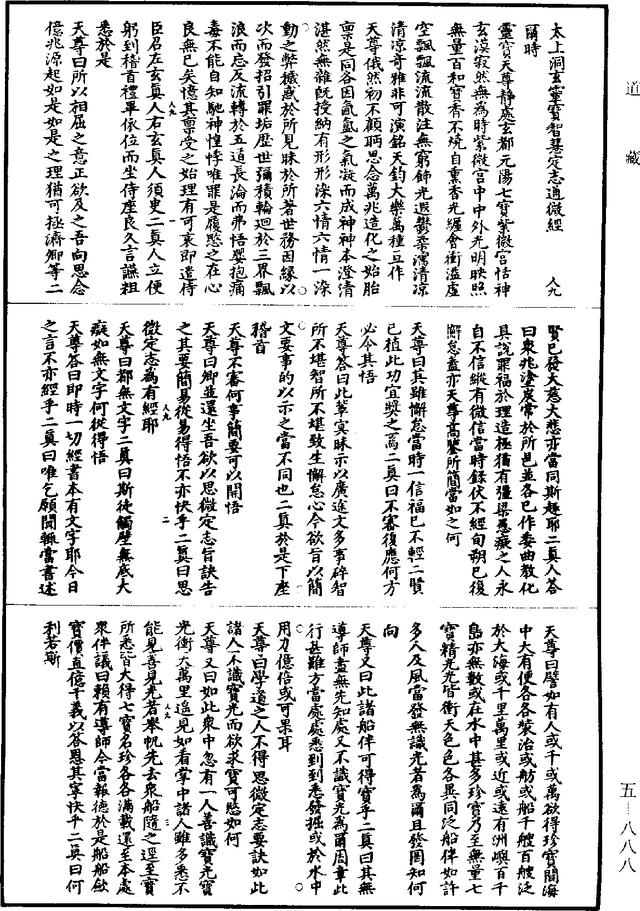 太上洞玄靈寶智慧定志通微經
人九
爾時
靈寶天尊靜處玄都元陽七寶紫微宮恬神
玄漠寂然無為時紫微宮中中外光明映照
無量百和寶香不燒自熏香光纏會衝溢虛
空飄飄流流散注無窮飾光遐鬱柔濡清凉
清凉奇雅非可演銘天鈞大樂萬種互作
天尊俄然初不顧眄思念萬兆造化之始胎
禀是同各因氤氳之氣凝而成神神本澄清
湛然無雜既授納有形形染六情六情一染
動之弊穢惑於所見昧於所著世務因緣以
次而發招引罪垢歷世彌積輪迴於三界飄
浪而忘反流轉於五道長淪而弗悟嬰抱痛
毒不能自知馳神惶悸唯罪是履愍之在心
良無已矣憶其禀受之始理有可哀即遣侍
臣召左玄真人右玄真人須臾二真人立便
躬到稽首禮畢依位而坐侍座良久言讌粗
悉於是
天尊曰所以相屈之意正欲及之吾向思念
億兆源起如是如是之理猶可極濟卿等二
賢已發大慈大悲亦當同斯趣耶二真人答
曰衆兆塗炭常於所邑並各已作委曲教化
具說罪福於理造極猶有彊梁愚癡之人永
自不信縱有微信當時錄伏不經旬朔已復
懈怠盡亦天尊高鑒所簡當如之何
天尊曰其雖懈怠當時一信福已不輕二賢
已植此功宜奬之焉二真曰不審復應何方
必令其悟
天尊答曰此輩冥昧示以廣途文多事碎智
所不堪智所不堪致生懈怠心今欲旨以簡
文要事的以示之當不同也二真於是下座
稽首
天尊不審何事簡要可以開悟
天尊曰卿並還坐吾欲以思微定志旨訣告
之其要簡易從易得悟不亦快乎二真曰思
微定志為有經耶
人九
二
天尊曰都無文字二真曰斯徒觸壁無底大
癡如無文字何從得悟
天尊答曰即時一切經書本有文字耶今日
之言不亦經乎二真曰唯乞願聞輒當書述
天尊曰譬如有人或千或萬欲得珍寶聞海
中大有便各各裝治或舫或船千艘百艘泛
於大海或千里萬里或近或遠有洲嶼百千
島亦無數或在水中甚多珍寶乃至無量七
寶精光光皆衝天色色各異同泛船伴如許
多人及風當發無識光若為爾且發罔知何
向
天尊又曰此諸船伴可得寶乎二真曰其無
導師盡無先知處又不識寶光為爾周章此
行甚難方當處處悉到到悉發掘或於水中
用力億倍或可果耳
天尊曰學道之人不得思微定志要訣如此
諸人不識寶光而欲求寶可愍如何
天尊又曰如此衆中忽有一人善識寶光寶
光衝天萬里遥見如看掌中諸人雖多悉不
人九
三
能見喜見光者舉帆先去衆船隨之逕至寶
所悉皆大得七寶名珍各各滿載還至本處
衆伴議曰賴有導師今當報德於是船船斂
寶價直億千義以答恩其寧快乎二真曰何
利若斯
道藏
五—八八八